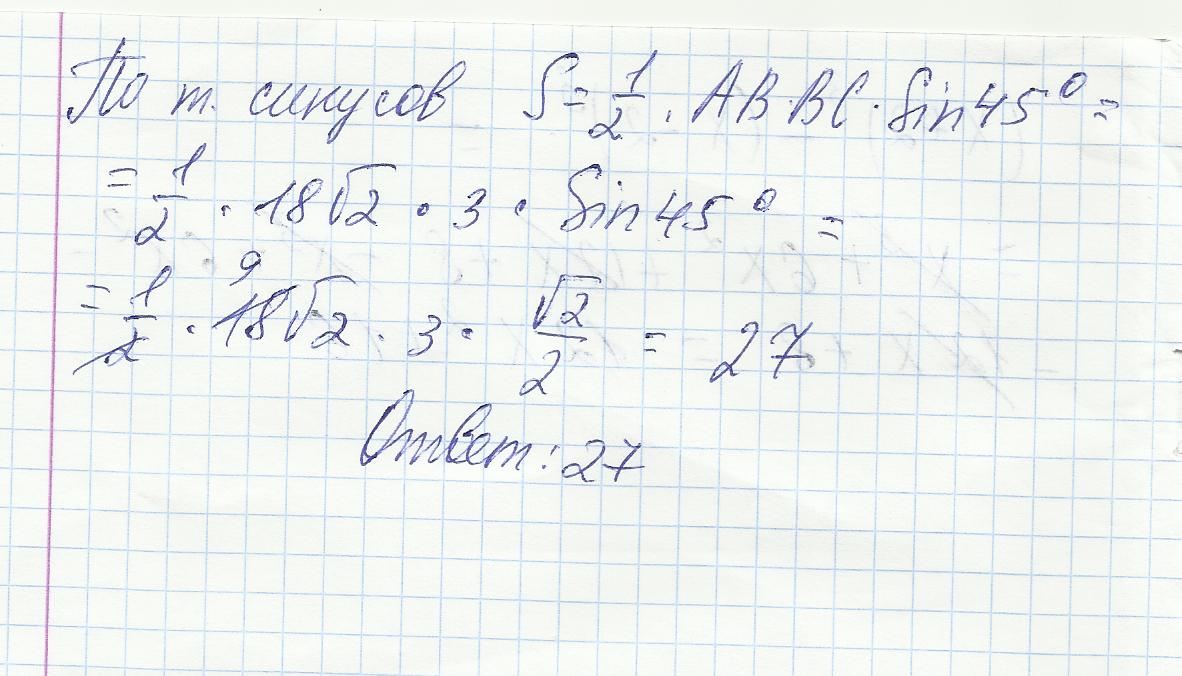 По т. синусов S = 1/2 · AB·BC · Sin45° =
= 1/2 · 18√2 · 3 · Sin45° =
9
= 1/2 · 18√2 · 3 · √2/2 = 27
Ответ: 27